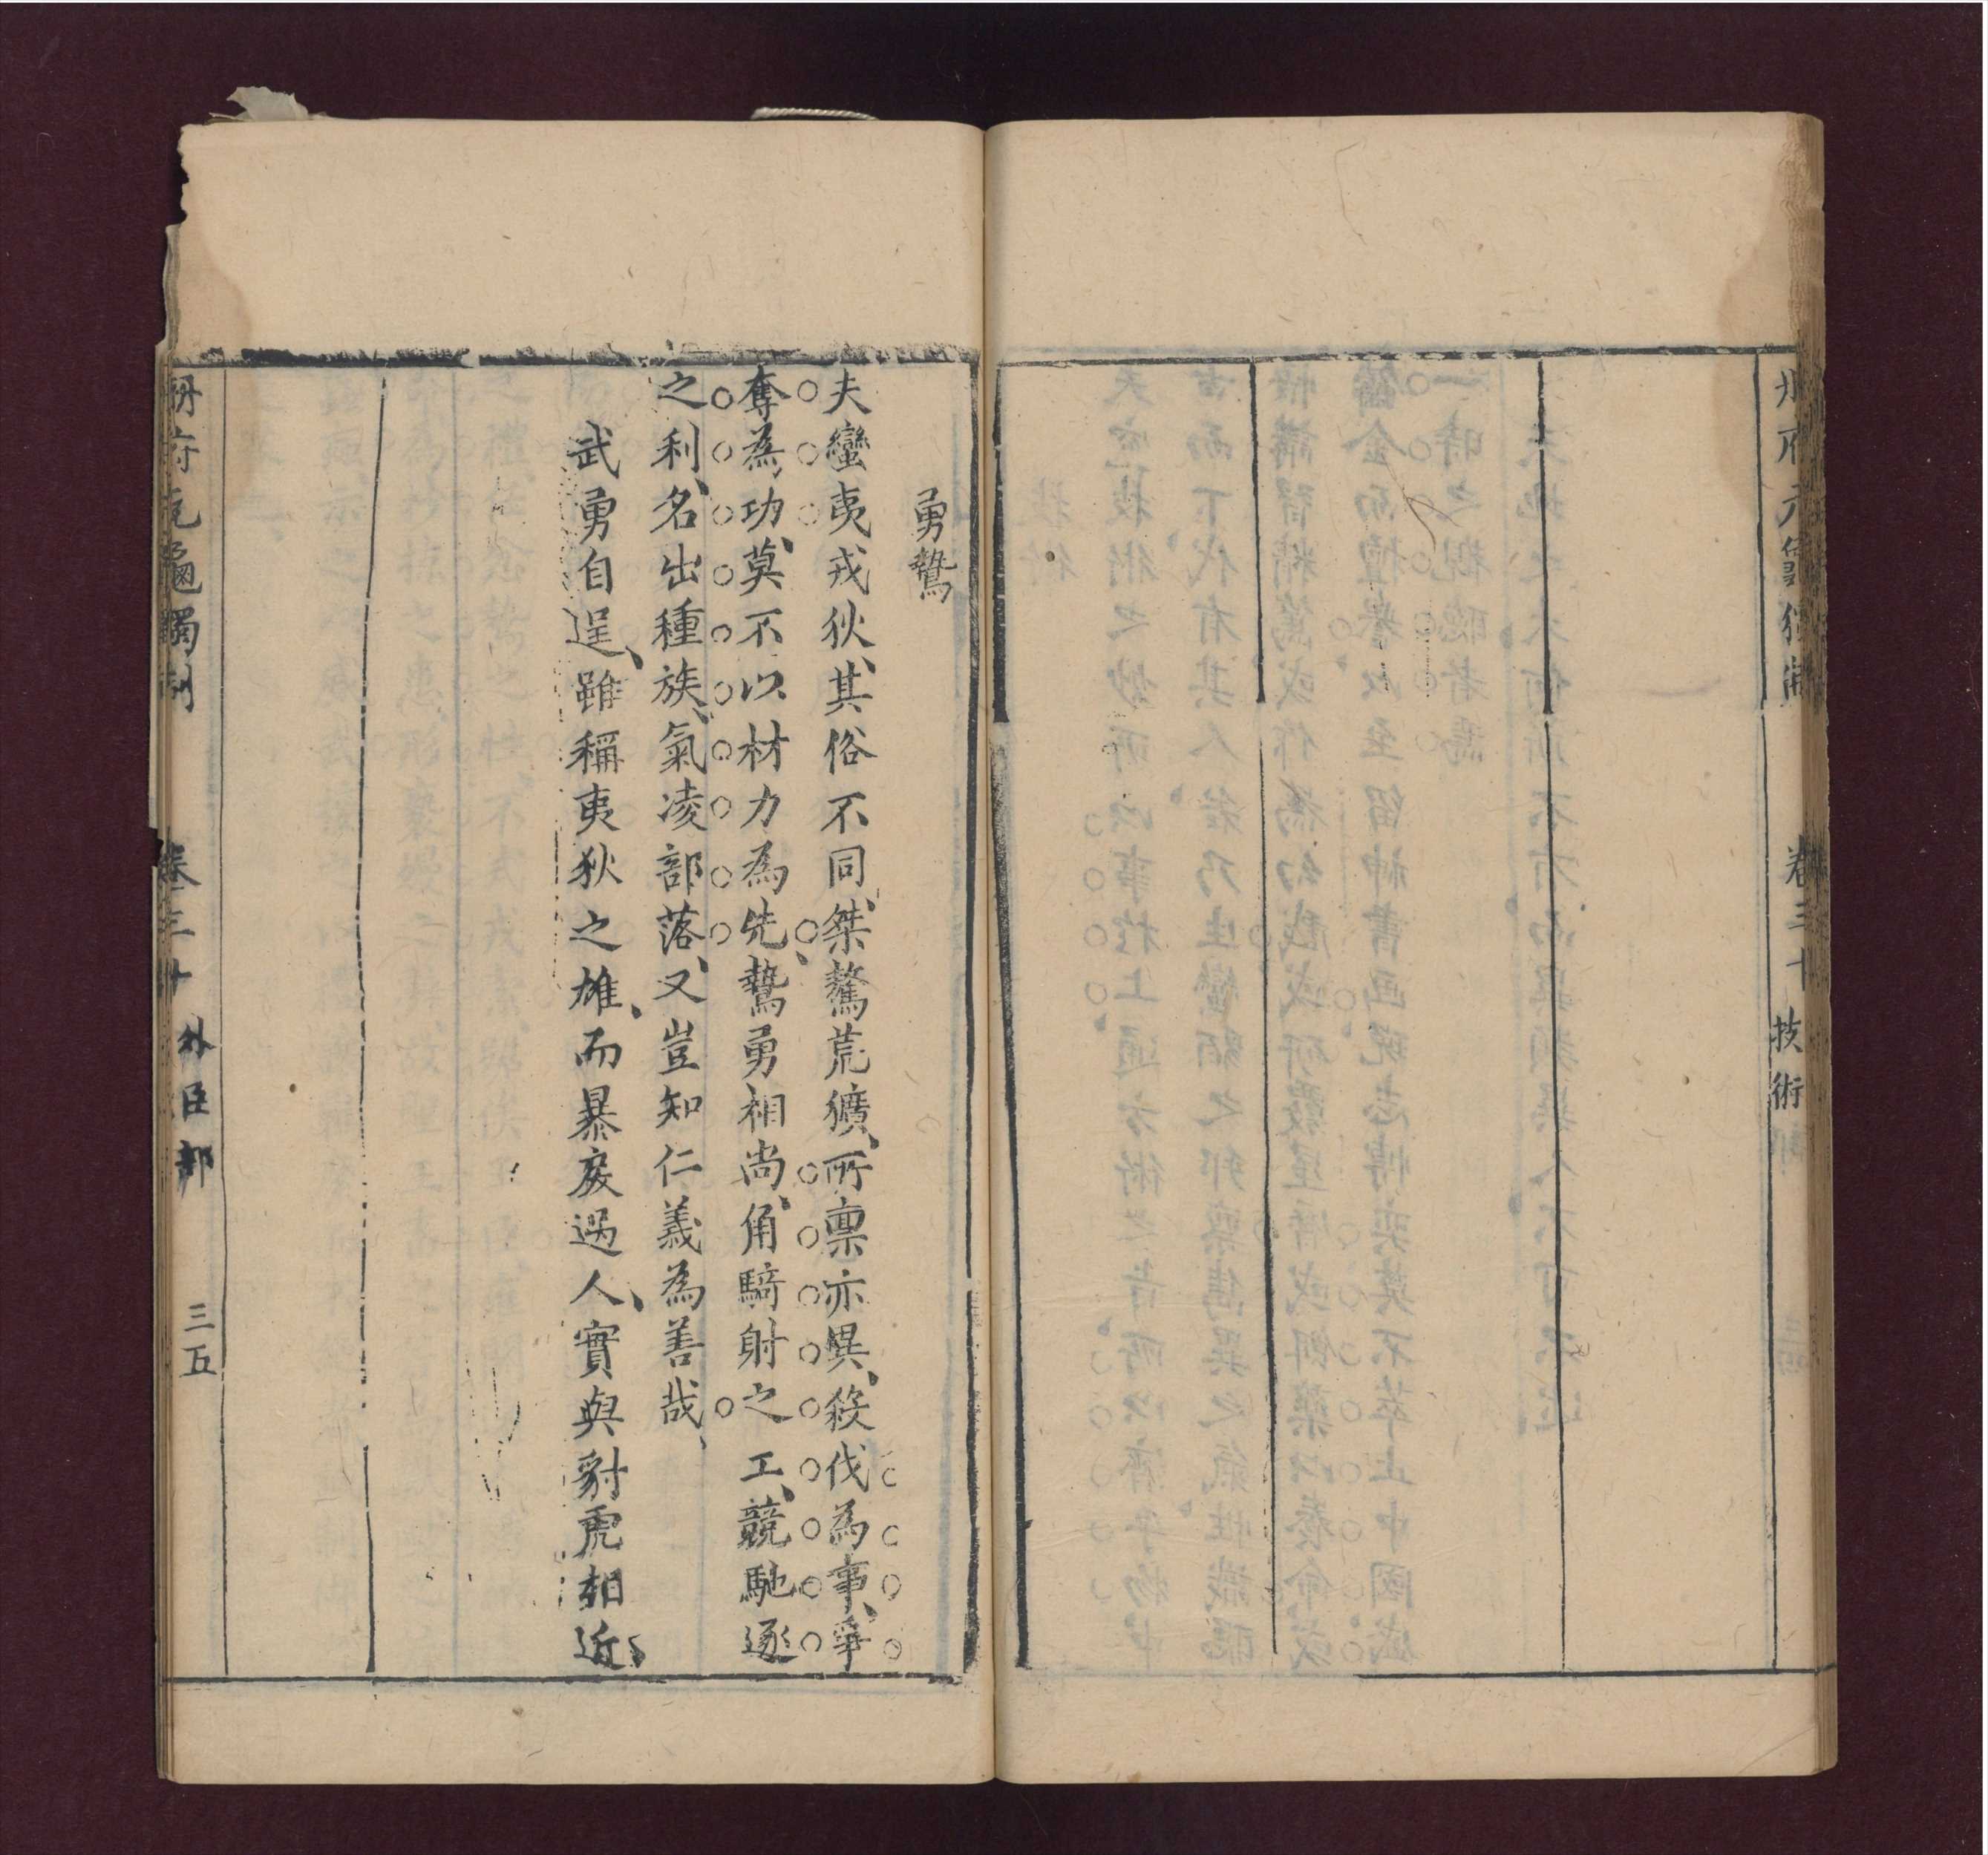 冊府元龜獨制
卷三十
技術
勇鷙
夫蠻夷戎狄、其俗不同、桀驁荒獷、所禀亦異、殺伐為事、爭
奪為功、莫不以材力為先、鷙勇相尚、角騎射之工、競馳逐
之利、名出種族、氣凌部落、又豈知仁義為善哉、
武勇自逞、雖稱夷狄之雄、而暴戾過人、實與豺虎相近、
冊府元龜獨制
卷三十
外臣部
三五